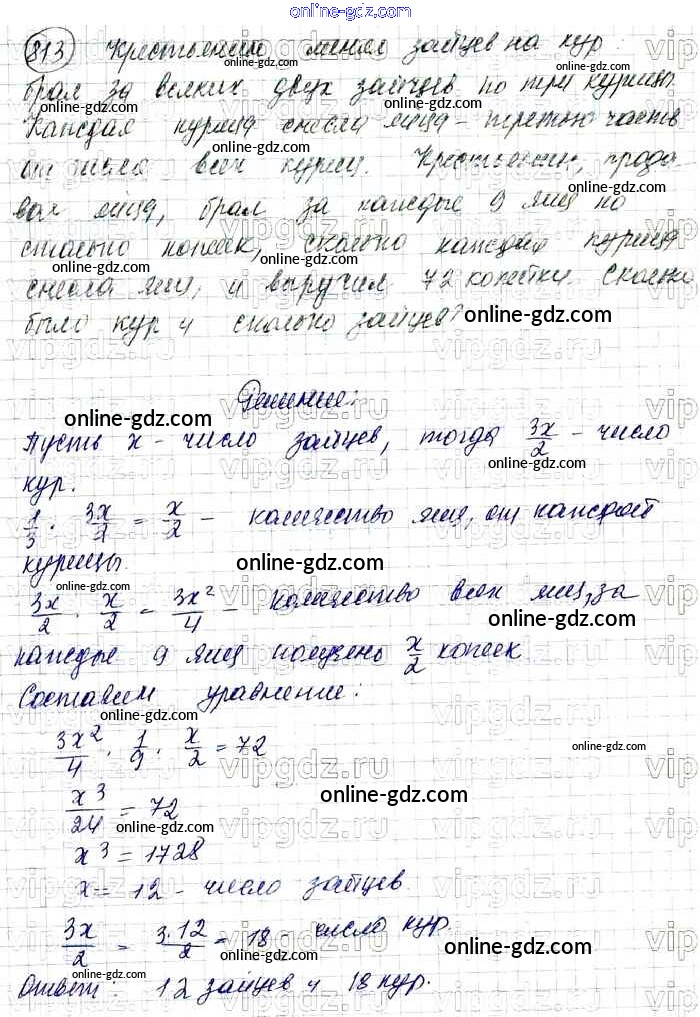 online-gdz.com
813 Крестьянин менял зайцев на кур
брал за всяких двух зайцев по три курицы.
Каждая курица снесла яйца - третью часть
от числа всех куриц. Крестьянин, прода-
вая яйца, брал за каждые 9 яиц по
столько копеек, сколько каждая курица
снесла яиц, и выручил 72 копейки. Сколько
было кур и сколько зайцев?
Решение:
Пусть x - число зайцев, тогда 3x/2 - число
кур.
1/3 · 3x/2 = x/2 - количество яиц, от каждой
курицы.
3x/2 · x/2 = 3x²/4 - количество всех яиц, за
каждые 9 яиц получено x/2 копеек
Составим уравнение:
3x²/4 · 1/9 · x/2 = 72
x³/24 = 72
x³ = 1728
x = 12 - число зайцев.
3x/2 = 3·12/2 = 18 - число кур.
Ответ: 12 зайцев и 18 кур.